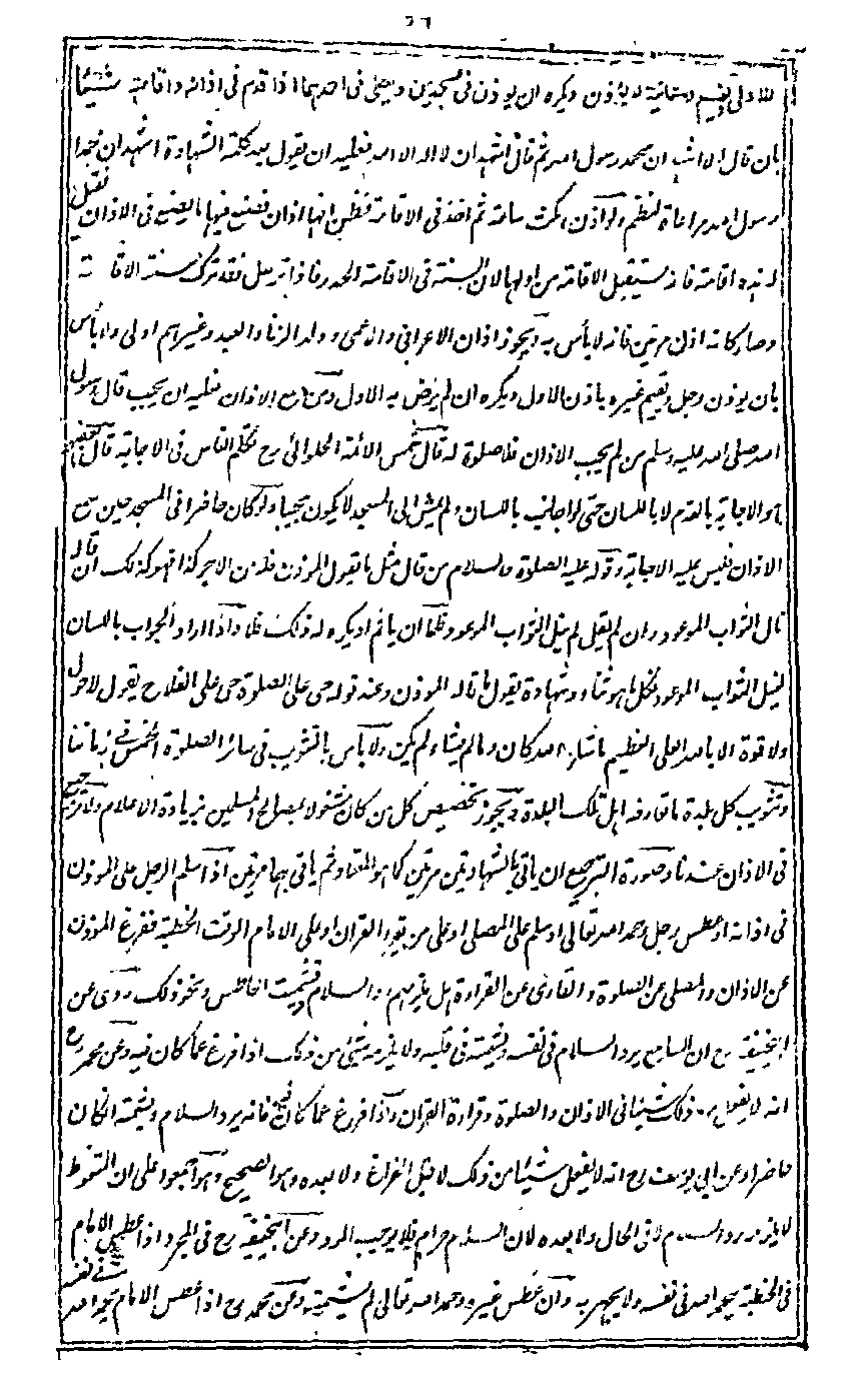 ٢٦
للاولى ويقيم وللثانية لا يؤذن ويكره ان يؤذن في مسجدين ويصلي في احدهما اذا قدم في اذانه واقامته شيئا
بان قال اولا اشهد ان محمد رسول الله ثم قال اشهد ان لا اله الا الله فعليه ان يقول بعد كلمة الشهادة اشهد ان محمدا
رسول الله مراعاة للنظم ولو اذن ومكث ساعة ثم اخذ في الاقامة فظن انها اذان فصنع فيها ما يصنع في الاذان فقيل
له هذه اقامة فانه يستقبل الاقامة من اولها لان السنة في الاقامة الحدر فاذا ترسل فقد ترك سنة الاقامة
وصار كانه اذن مرتين فانه لا بأس به ويجوز اذان الاعرابي والاعمى وولد الزنا والعبد وغيرهم اولى ولا بأس
بان يؤذن رجل ويقيم غيره باذن الاول ويكره ان لم يرض به الاول ومن سمع الاذان فعليه ان يجيب قال رسول
الله صلى الله عليه وسلم من لم يجب الاذان فلا صلوة له قال شمس الائمة الحلوائي رح تكلم الناس في الاجابة قال بعضهم
هو الاجابة بالقدم لا باللسان حتى لو اجاب باللسان ولم يمش الى المسجد لا يكون مجيبا ولو كان حاضرا في المسجد حين سمع
الاذان فليس عليه الاجابة وقوله عليه الصلوة والسلام من قال مثل ما يقول المؤذن فله من الاجر كذا فهو كذلك ان قاله
نال الثواب الموعود وان لم يقل لم ينل الثواب الموعود فاما ان ياثم او يكره له ذلك فلا واذا اراد الجواب باللسان
لنيل الثواب الموعود فكل ما هو ثناء وشهادة يقول ما قاله المؤذن وعند قوله حي على الصلوة حي على الفلاح يقول لا حول
ولا قوة الا بالله العلي العظيم ما شاء الله كان وما لم يشاء لم يكن ولا بأس بالتثويب في سائر الصلوة الخمس في زماننا
وتثويب كل بلدة ما تعارفه اهل تلك البلدة ويجوز تخصيص كل من كان مشغولا بمصالح المسلمين بزيادة الاعلام ولا ترجيع
في الاذان عندنا وصورة الترجيع ان ياتي بالشهادتين مرتين كما هو المعتاد ثم ياتي بهما مرتين اذا سلم الرجل على المؤذن
في اذانه او عطس رجل وحمد الله تعالى او سلم على المصلي او على من يقرء القران او على الامام الوقت الخطبة ففرغ المؤذن
عن الاذان والمصلي عن الصلوة والقارئ عن القراءة هل يلزمهم رد السلام وتشميت العاطس ونحو ذلك روى عن
ابي حنيفة رح ان السامع يرد السلام في نفسه ويشمته في قلبه ولا يلزمه شيئ من ذلك اذا فرغ عما كان فيه وعن محمد رح
انه لا يفعل من ذلك شيئا في الاذان والصلوة وقراءة القران واذا فرغ عما كان فيه فانه يرد السلام ويشمته ان كان
حاضرا وعن ابي يوسف رح انه لا يفعل شيئا من ذلك لا قبل الفراغ ولا بعده وهو الصحيح واجمعوا على ان المتغوط
لا يلزمه رد السلام لا في الحال ولا بعده لان السلام حرام فلا يوجب الرد وعن ابي حنيفة رح في المجرد اذا عطس الامام
في الخطبة يحمد الله في نفسه ولا يجهر به وان عطس غيره وحمد الله تعالى لم يشمته وعن محمد رح اذا عطس الامام يحمد الله في نفسه